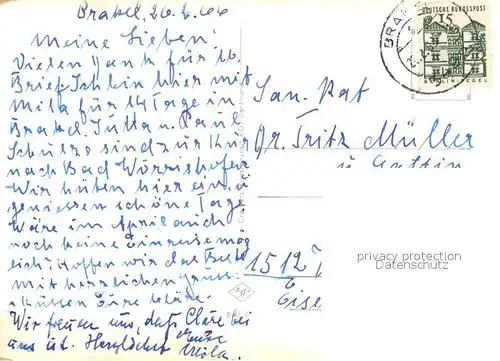 Brakel, 20.2.66
Meine Lieben!
Vielen Dank für lb.
Brief. Ich bin hier mit
für 14 Tage in
Brakel. Jutta u. Paul
Schulze sind zur Kur
nach Bad Wörrishofen
Wir hüten hier ein u.
geniessen schöne Tage
Wäre im April auch
noch keine Einreise mög
lich? Hoffen wir das Beste
mit herzlichen Grüss.
u Küssen Eure
Wir freuen uns, daß Cläre bei
uns ist. Herzlichst Eure
DEUTSCHE BUNDESPOST
15
TEGEL
San. Rat
Dr. Fritz Müller
u Gattin
1512
Eise
privacy protection
Datenschutz